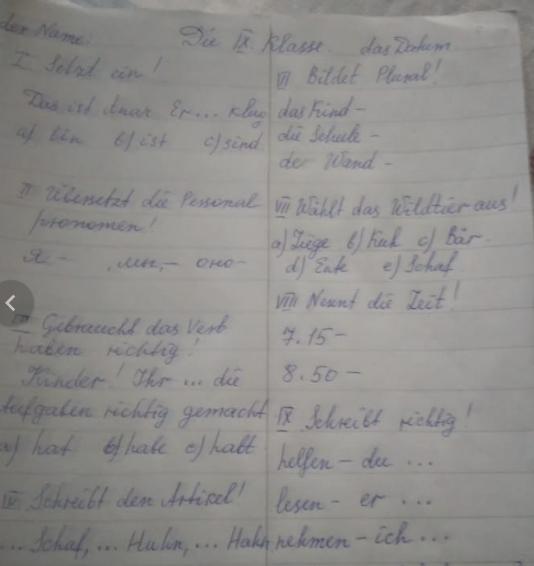 der Name:
Die IX Klasse. das Datum
I Setzt ein!
Das ist Anar Er... klug
a) bin b) ist c) sind
II Übersetzt die Personal
pronomen!
Я – , мы, – оно –
III Gibraucht das Verb
haben richtig!
Kinder! Ihr ... die
Aufgaben richtig gemacht
a) hat b) habe c) habt
IV Schreibt den Artikel!
... Schaf, ... Huhn, ... Hahn
VI Bildet Plural!
das Kind –
die Schule –
der Wand –
VII Wählt das Wildtier aus!
a) Ziege b) Kuh c) Bär
d) Ente e) Schaf
VIII Nennt die Zeit!
7.15 –
8.50 –
IX Schreibt richtig!
helfen – du ...
lesen – er ...
nehmen – ich ...